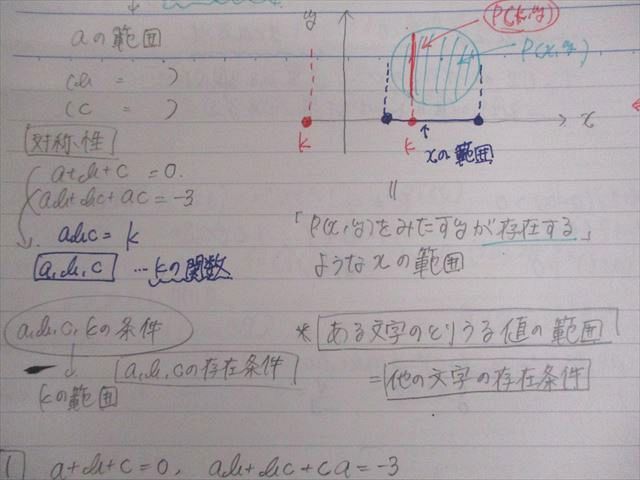 aの範囲
(b = )
(c = )
対称性
a+b+c = 0.
ab+bc+ac = -3
abc = k
a,b,c …kの関数
a,b,c,kの条件
a,b,cの存在条件
kの範囲
y
P(k,y)
P(x,y)
x
k
k
xの範囲
||
「P(x,y)をみたすyが存在する」
ようなxの範囲
* ある文字のとりうる値の範囲
= 他の文字の存在条件
1 a+b+c=0, ab+bc+ca=-3